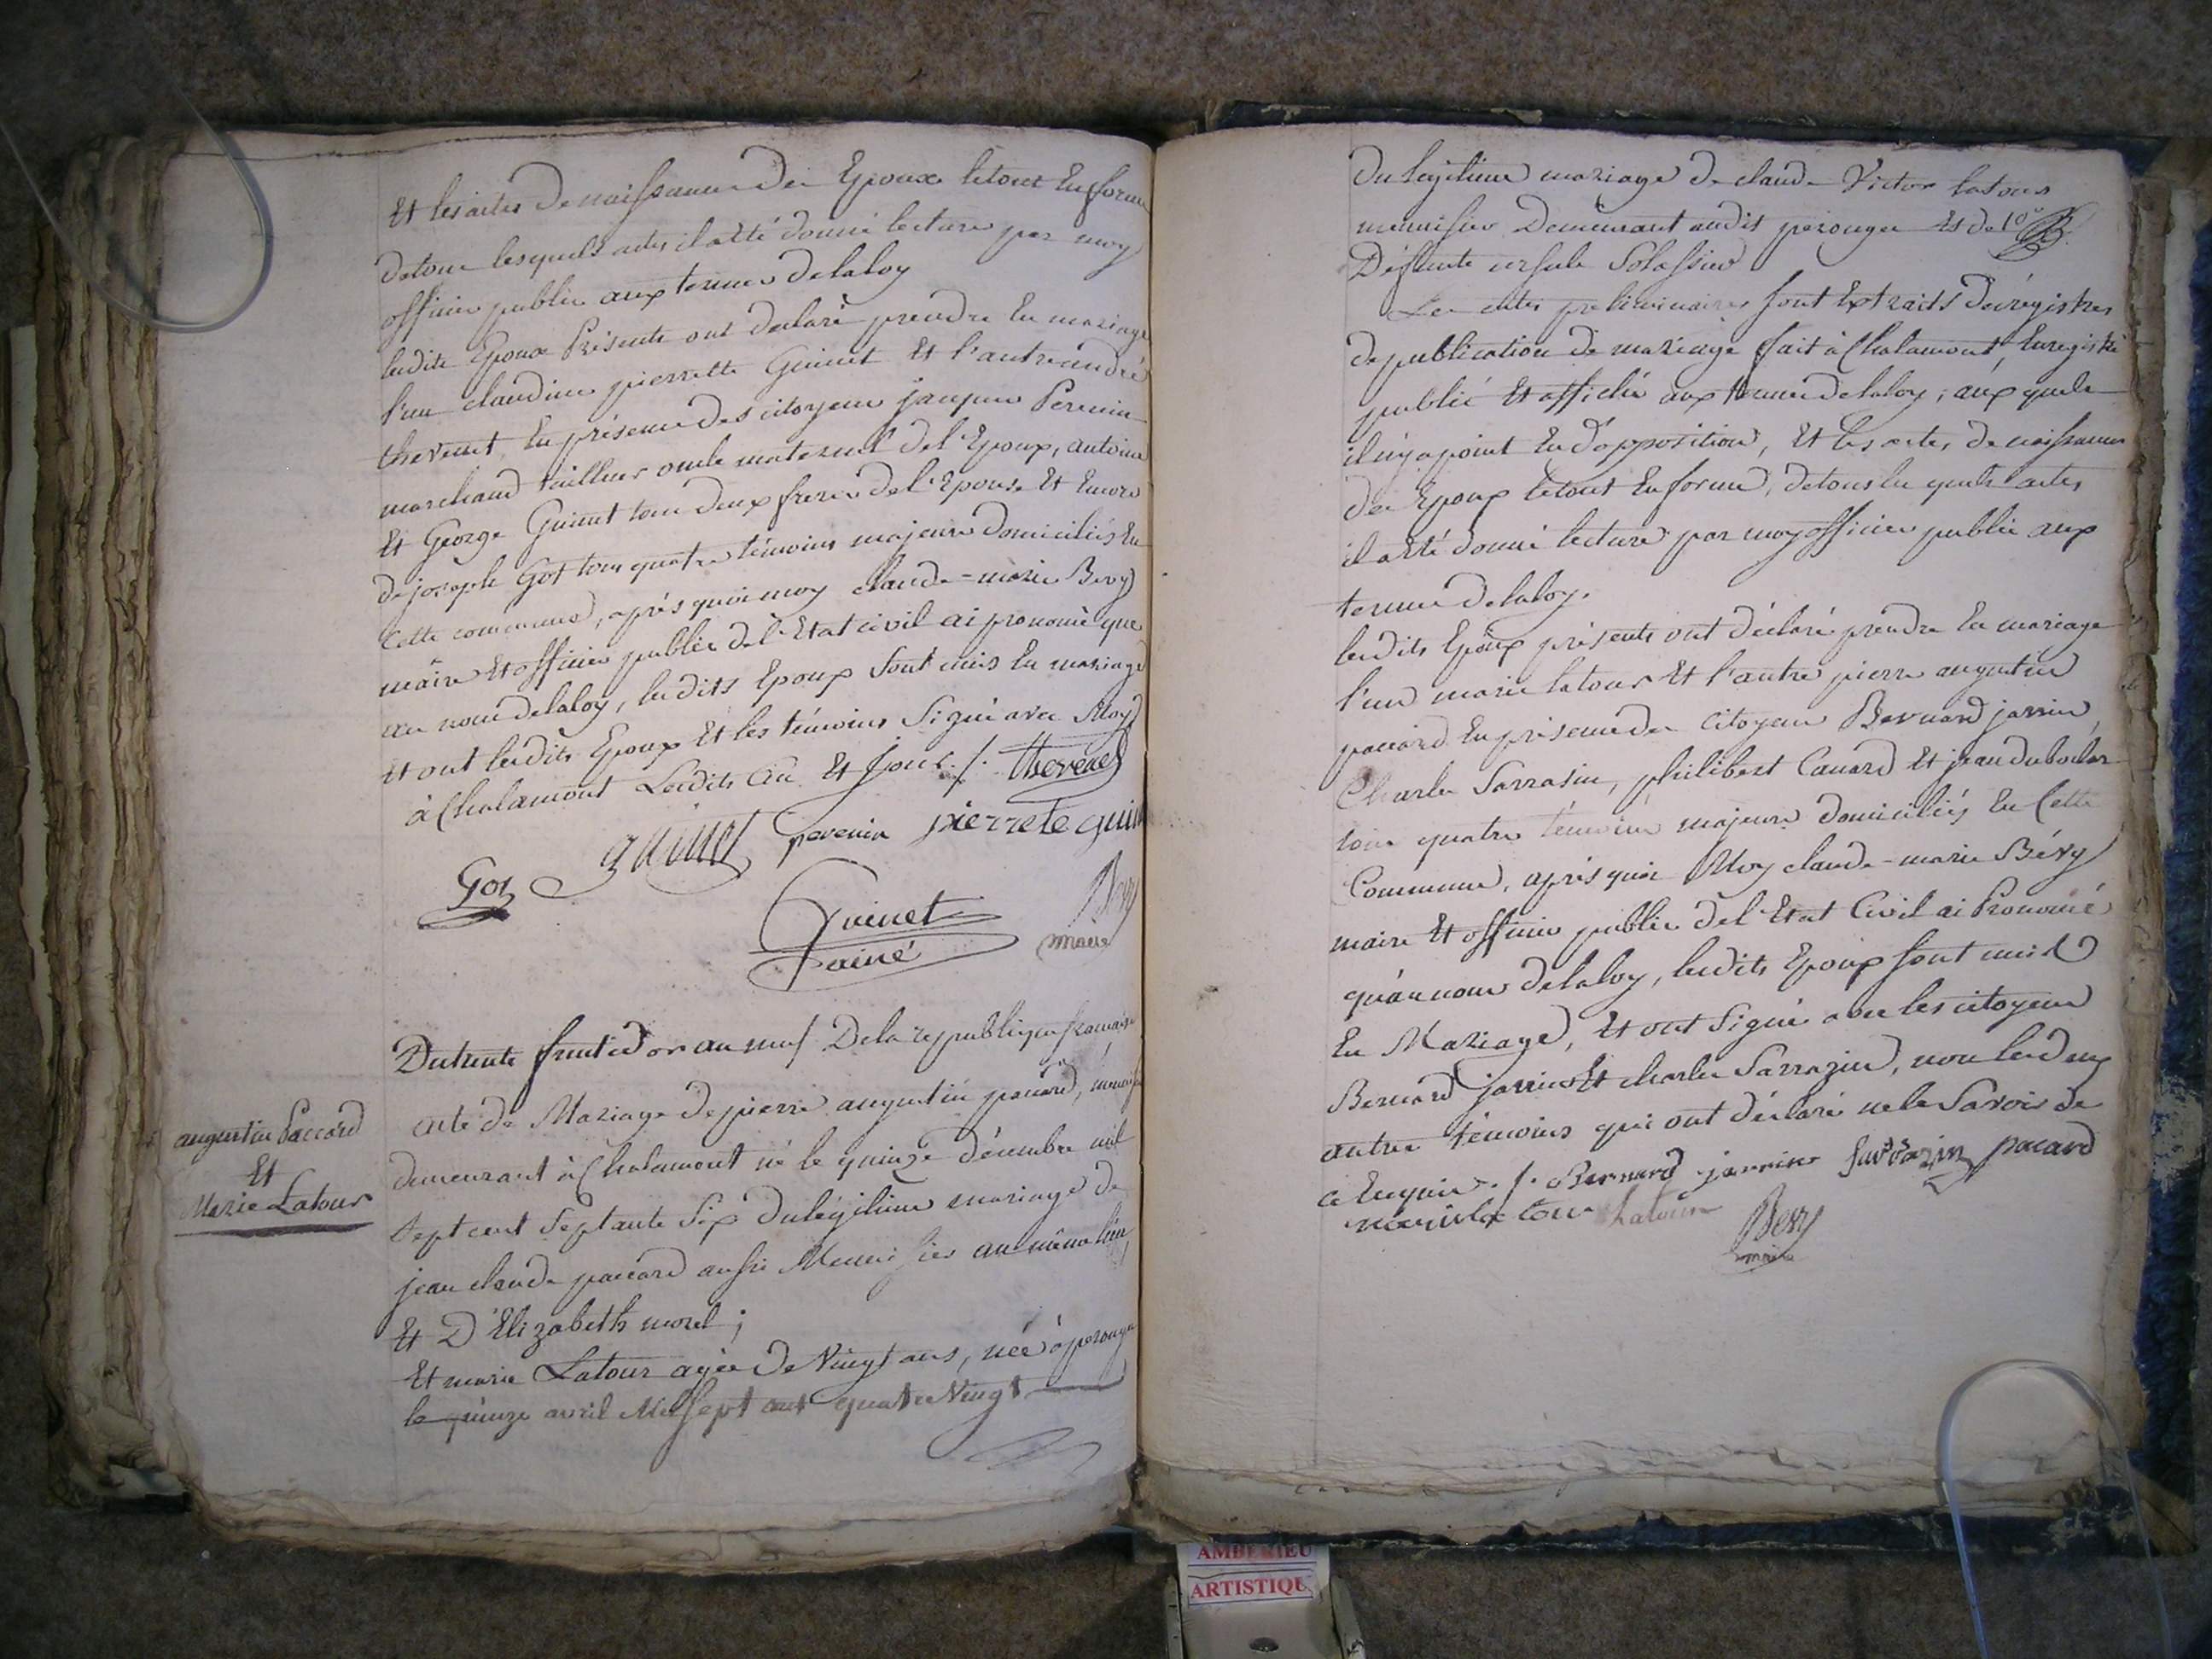 Et les actes de naissance des Epoux letout En forme
detous lesquels actes il aété donné lecture par moy
officier public aux termes delaloy
lesdits Epoux Présents ont declaré prendre En mariage
l'un claudine pierrette Guinet Et l'autre andré
thevenet, En présence des citoyens jacques Perenin
marchand tailleur oncle maternel del'Epoux, antoine
Et George Guinet tous deux freres del'Epouse Et Encore
de joseph Goy tous quatre témoins majeurs domiciliés En
Cette commune, après quoi moy claude=marie Bevy
maire Et officier public del'Etat civil ai prononcé que
au nom delaloy, lesdits Epoux sont unis En mariage
Et ont lesdits Epoux Et les témoins Signé avec Moy
à Chalamont Lesdits an Et jour ./. thevenet
guinet perenin pierrete guin
Goy
Guinet
ainé
Bevy
maire
Dutrente fructidor an neuf Dela republique francaise
acte de Mariage de pierre augustin paccard, menuisier
demeurant à Chalamont né le quinze décembre mil
sept cent septante Six dulégitime mariage de
jean claude paccard aussi Menuisier au même lieu
Et D'Elizabeth morel ;
Et marie Latour agée de Vingt ans, née à perouges
le quinze avril Mil sept cent quatre Vingt
augustin Paccard
Et
Marie Latour
Du légitime mariage de claude Victor latour
menuisier Demeurant audit perouges Et de
Défunte ursule
Les actes preliminaires sont Extraits des régistres
de publication de mariage fait à Chalamont, Enregistré
publié Et affiché aux termes delaloy, auxquels
il n'y a point Eu d'opposition, Et les actes de naissance
des Epoux letout En forme, detous les quels actes
il aété donné lecture par moy officier public aux
termes delaloy.
lesdits Epoux présents ont déclaré prendre En mariage
l'un marie latour Et l'autre pierre augustin
paccard En présence des Citoyens Bernard jannin,
Charles Sarrasin, philibert Canard Et jean
tous quatre témoins majeurs domiciliés En Cette
Commune, après quoi Moy claude=marie Bévy
maire Et officier public del'Etat Civil ai Prononcé
qu'au nom delaloy, lesdits Epoux sont unis
En Mariage, Et ont Signé avec les citoyens
Bernard jannin Et charles Sarrazin, non les deux
autres témoins qui ont déclaré ne le Savoir de
ce Enquis ./. Bernard jannin Sarrazin pacard
marie la tour Latour
Bevy
maire
AMBERIEU
ARTISTIQU